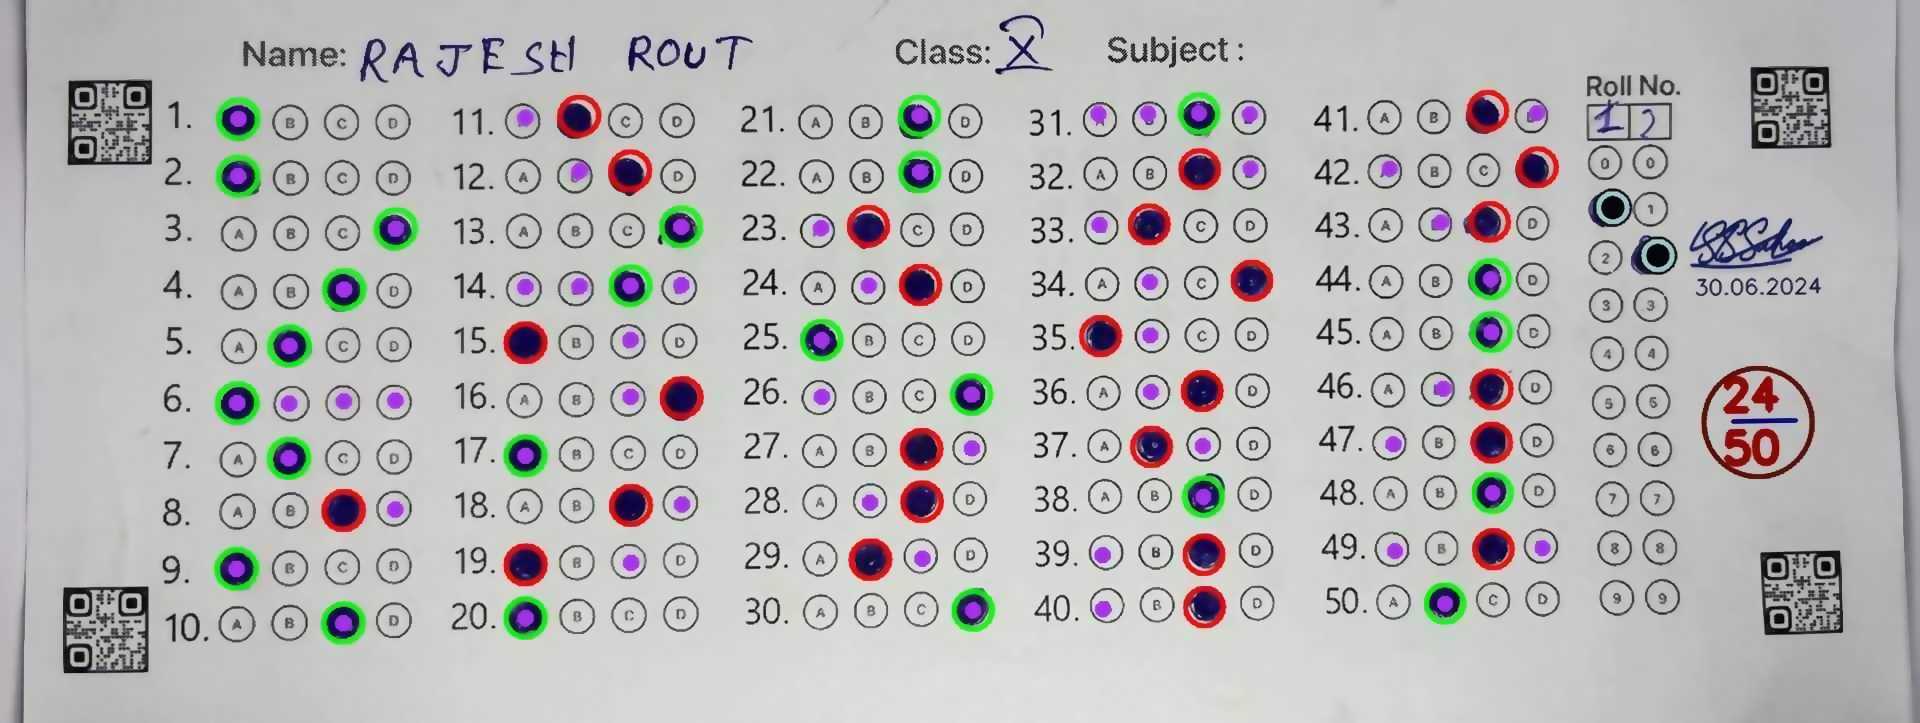 Name: RAJESH ROUT Class: X Subject :
Roll No.
1 2
1. B C D
2. B C D
3. A B C
4. A B D
5. A C D
6.
7. A C D
8. A B
9. B C D
10. A B D
11. C D
12. A D
13. A B C
14.
15. B D
16. A B
17. B C D
18. A B
19. B D
20. B C D
21. A B D
22. A B D
23. C D
24. A D
25. B C D
26. B C
27. A B
28. A D
29. A D
30. A B C
31.
32. A B
33. C D
34. A C
35. C D
36. A D
37. A D
38. A B D
39. B D
40. B D
41. A B
42. B C
43. A D
44. A B D
45. A B D
46. A D
47. B D
48. A B D
49. B
50. A C D
0 0
1
2
3 3
4 4
5 5
6 6
7 7
8 8
9 9
30.06.2024
24
50